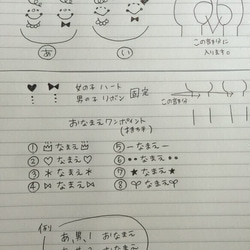 あ い
この部分に
入ります。
女の子 ハート
男の子 リボン 固定
この部分
おなまえワンポイント
(持ち手)
① なまえ ⑤ ーなまえー
② なまえ♡ ⑥ なまえ
③ なまえ ⑦ ★なまえ★
④ なまえ ⑧ なまえ
例)
あ、男、1 おなまえ